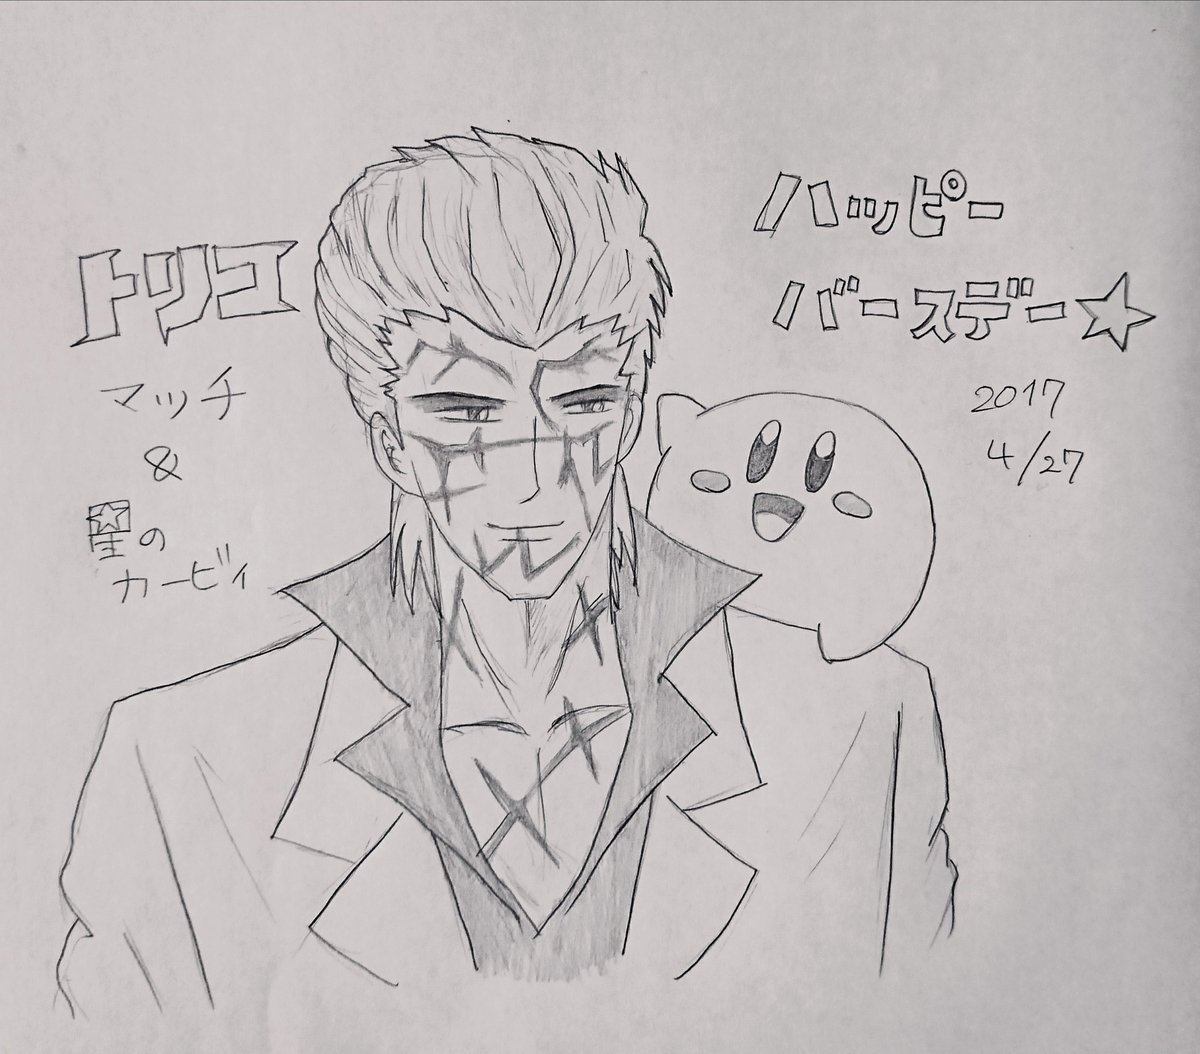 トリコ
マッチ
&
星の
カービィ
ハッピー
バースデー☆
2017
4/27